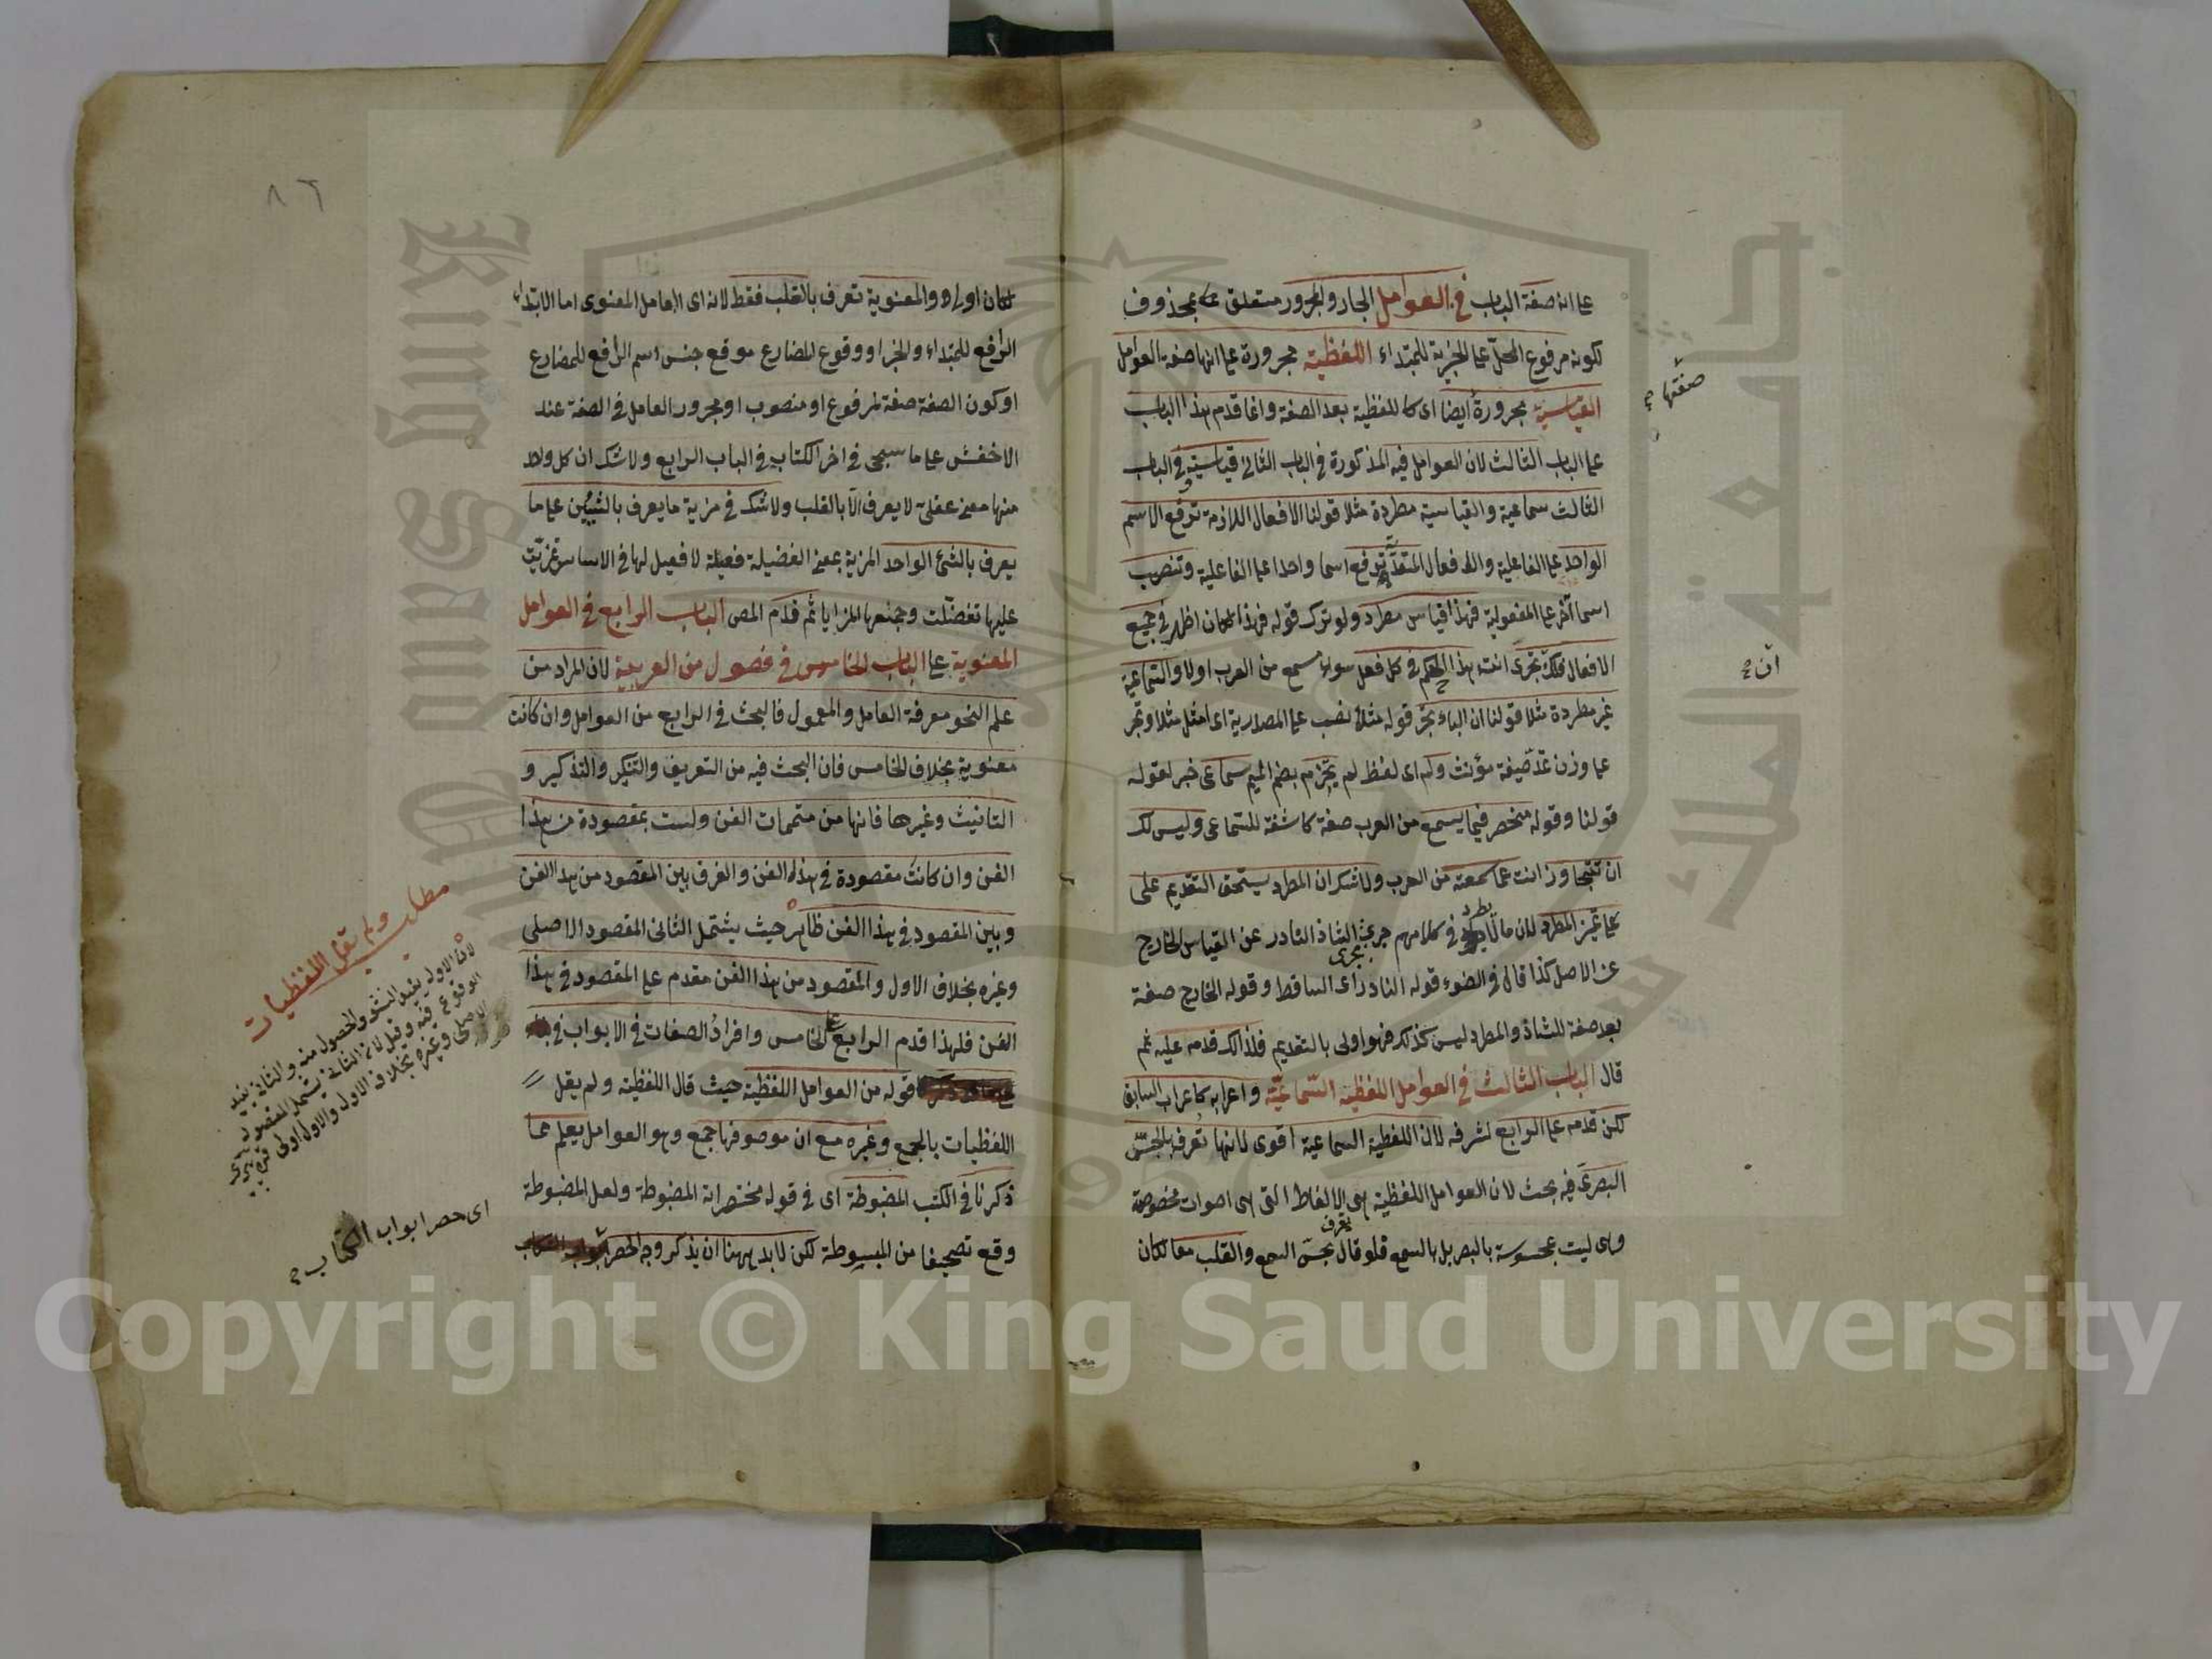 على انه صفة الباب في العوامل الجار والمجرور متعلق بمحذوف
لكونه مرفوع المحل على الخبرية للمبتداء اللفظية مجرورة على انها صفة العوامل
القياسية مجرورة ايضا اى كاللفظية بعد الصفة وانما قدم هذا الباب
على الباب الثالث لان العوامل فيه المذكورة في الباب الثانى قياسية وفى الباب
الثالث سماعية والقياسية مطردة مثلا قولنا الافعال اللازمة ترفع الاسم
الواحد على الفاعلية والافعال المتعدية ترفع اسما واحدا على الفاعلية وتنصب
اسما آخر على المفعولية فهذا قياس مطرد ولو ترك قوله فهذا لكان اظهر في جميع
الافعال فلك ان تجرى انت هذا الحكم في كل فعل سواء سمع من العرب اولا والسماعية
غير مطردة مثلا قولنا ان الباء تجر قوله مثلا نصب على المصدرية اى امثل مثلا وتجر
على وزن تمد صيغة مؤنث ولم اى لفظ لم يجزم بضم الميم سماعى خبر لقوله
قولنا وقوله منحصر فيما يسمع من العرب صفة كاشفة للسماعى وليس لك
ان تتجاوز انت عما سمعته من العرب ولا شك ان المطرد يستحق التقديم على
غير المطرد لان مالا يطرد في كلامهم جرى مجرى الشاذ النادر عن القياس الخارج
عن الاصل كذا قال في الضوء قوله النادر اى الساقط وقوله الخارج صفة
بعد صفة للشاذ والمطرد ليس كذلك فهو اولى بالتقديم فلذالك قدمه عليه ثم
قال الباب الثالث في العوامل اللفظية السماعية واعرابه كاعراب السابق
لكن قدمه على الرابع لشرفه لان اللفظية السماعية اقوى لانها تعرف بالحس
البصرى فيه بحث لان العوامل اللفظية هى الالفاظ التى هى اصوات مخصوصة
وهى ليت بمحسوسة بالبصر بل بالسمع فلو قال تعرف بحس السمع والقلب معا لكان
صفتها
ان
٨٦
لكان اولى والمعنوية تعرف بالقلب فقط لانه اى العامل المعنوى اما الابتداء
الرافع للمبتداء والخبر او وقوع المضارع موقع جنس اسم الرافع للمضارع
او كون الصفة صفة لمرفوع او منصوب او مجرور العامل في الصفة عند
الاخفش على ما سيجئ في اخر الكتاب في الباب الرابع ولا شك ان كل واحد
منها معنى عقلى لا يعرف الا بالقلب ولا شك في مزية ما يعرف بالشيئين على ما
يعرف بالشئ الواحد المزية بمعنى الفضيلة فعيلة لا فعيل لها في الاساس تمزيت
عليها تفضلت وجمعها المزايا ثم قدم المص الباب الرابع في العوامل
المعنوية على الباب الخامس في فصول من العربية لان المراد من
علم النحو معرفة العامل والمعمول فالبحث في الرابع من العوامل وان كانت
معنوية بخلاف الخامس فان البحث فيه من التعريف والتنكير والتذكير و
التانيث وغيرها فانها من متممات الفن وليست بمقصودة من هذا
الفن وان كانت مقصودة في هذه الفن والفرق بين المقصود من هذا الفن
وبين المقصود في هذا الفن ظاهر حيث يشتمل الثانى المقصود الاصلى
وغيره بخلاف الاول والمقصود من هذا الفن مقدم على المقصود في هذا
الفن فلهذا قدم الرابع على الخامس وافراد الصفات في الابواب في
قوله من العوامل اللفظية حيث قال اللفظية ولم يقل
اللفظيات بالجمع وغيره مع ان موصوفها جمع وهو العوامل يعلم مما
ذكرنا في الكتب المضبوطة اى في قوله مختصراته المضبوطة ولعل المضبوطة
وقع تصحيفا من المبسوطة لكن لا بد ههنا ان يذكر وجه الحصر
مطلب ولم يقل اللفظيات
لان الاول يفيد النشؤ والحصول منه والثانى يفيد
الوقوع فيه وقيل لان الثانى يشتمل المقصود
الاصلى وغيره بخلاف الاول والاول اولى
اى حصر ابواب الكتاب
جامعة الملك سعود
King Saud University
Copyright © King Saud University